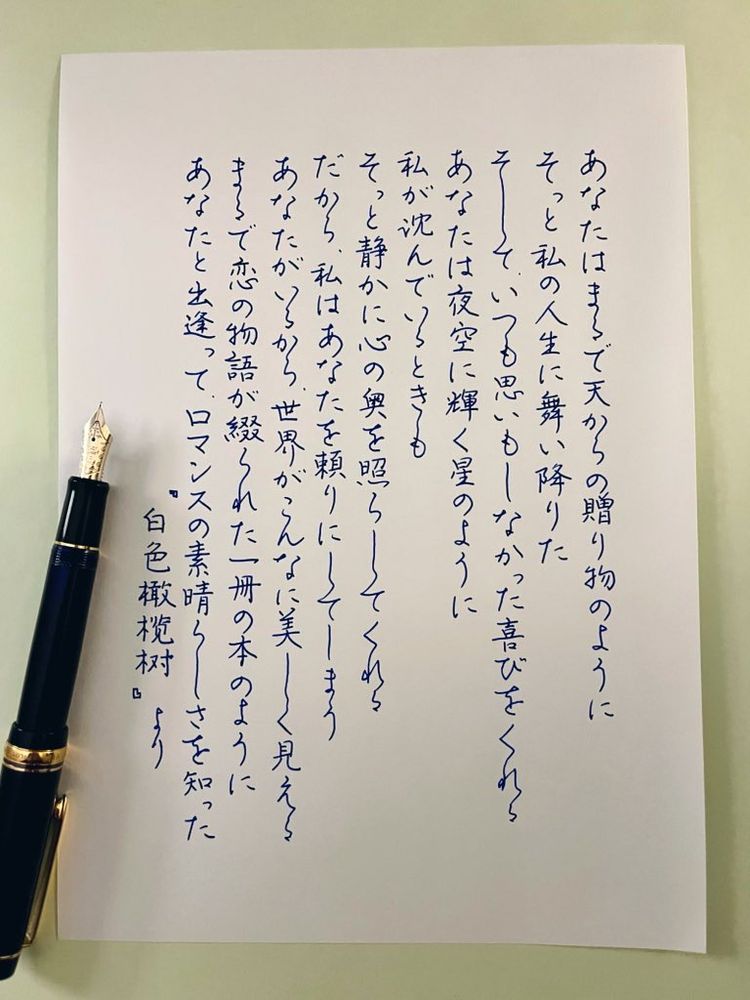 あなたはまるで天からの贈り物のように
そっと私の人生に舞い降りた
そして、いつも思いもしなかった喜びをくれる
あなたは夜空に輝く星のように
私が沈んでいるときも
そっと静かに心の奥を照らしてくれる
だから、私はあなたを頼りにしてしまう
あなたがいるから、世界がこんなに美しく見える
まるで恋の物語が綴られた一冊の本のように
あなたと出逢って、ロマンスの素晴らしさを知った
『白色橄榄树』より